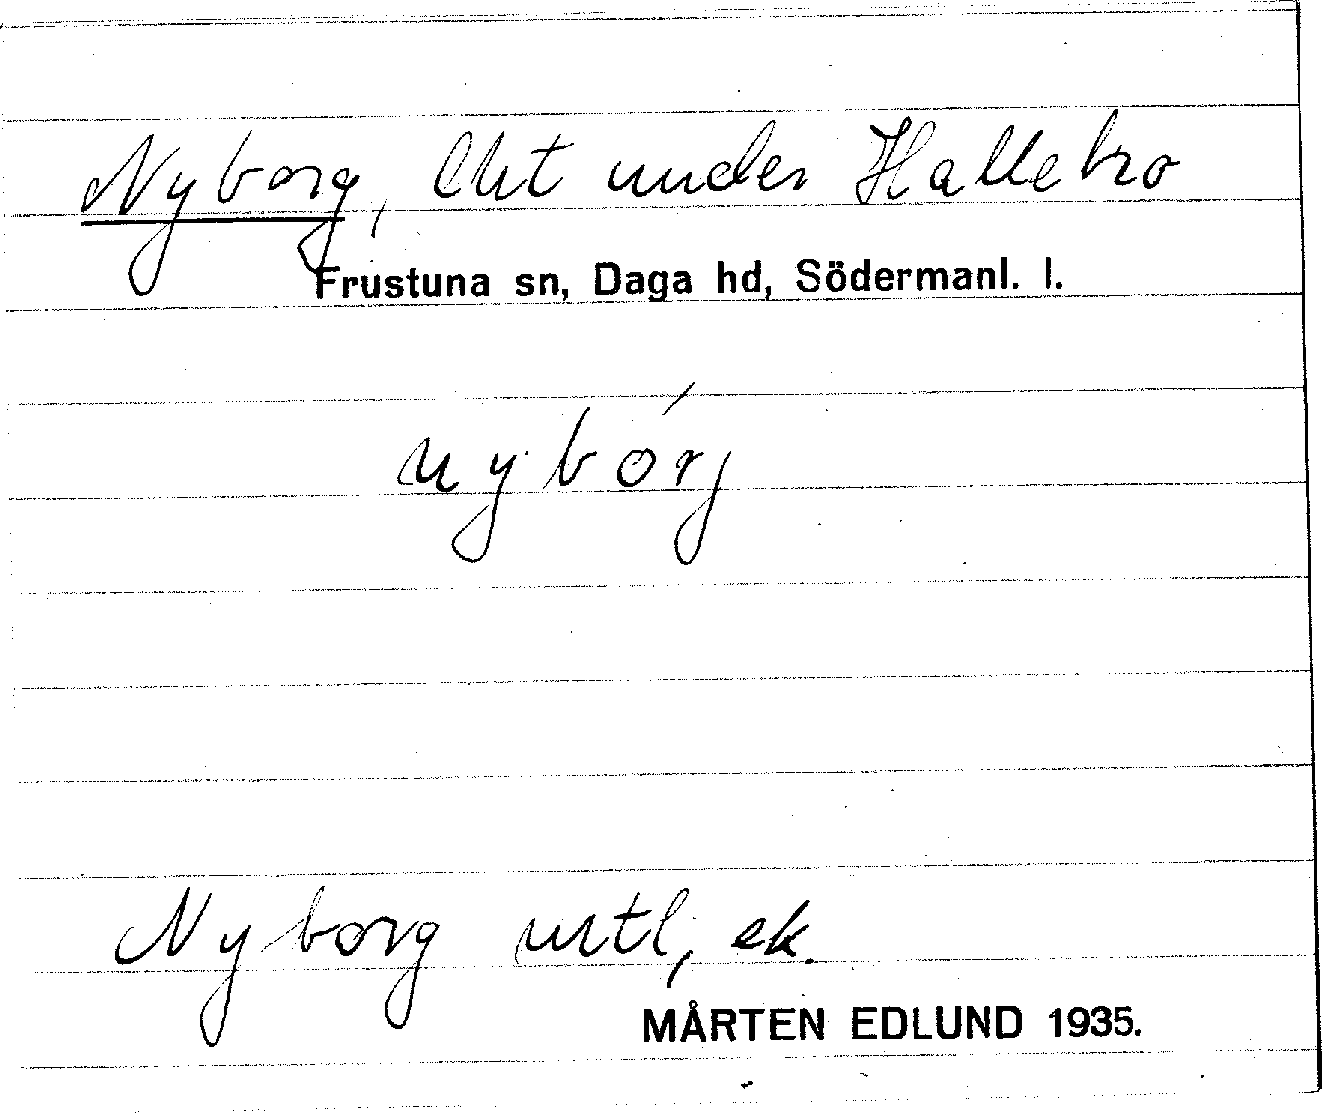 Nyborg, lht under Hallebro
Frustuna sn, Daga hd, Södermanl. l.
nybórj
Nyborg urtl, ek.
MÅRTEN EDLUND 1935.